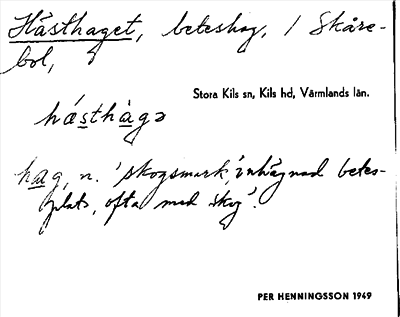 Hästhaget, beteshag, / Skåre-
bol,
Stora Kils sn, Kils hd, Värmlands län.
hásthàgə
hag, n. 'skogsmark', inhägnad betes-
plats, ofta med skog'.
PER HENNINGSSON 1949